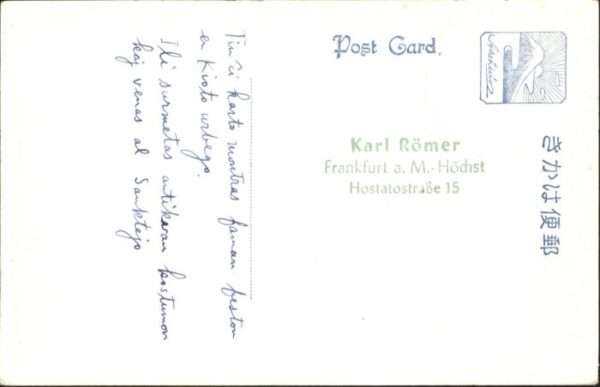 Post Card.
郵便はかき
Karl Römer
Frankfurt a. M.-Höchst
Hostatostraße 15
Tiu ĉi karto montras faman feston
en Kioto urbego.
Ili surmetas antikvan kostumon
kaj venas al Sanktejo